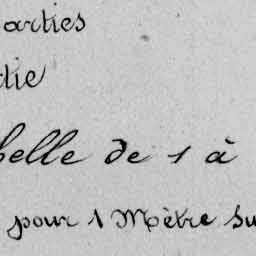 arties
tie
helle de 1 à
pour 1 Mètre su